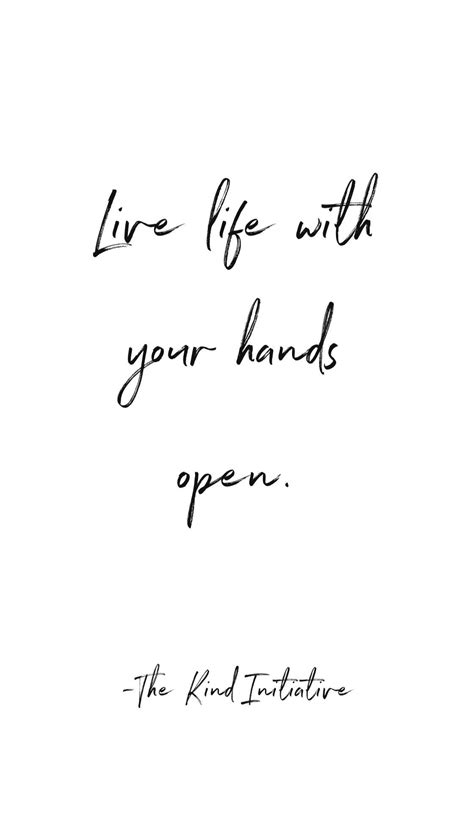 Live life with
your hands
open.
-The Kind Initiative